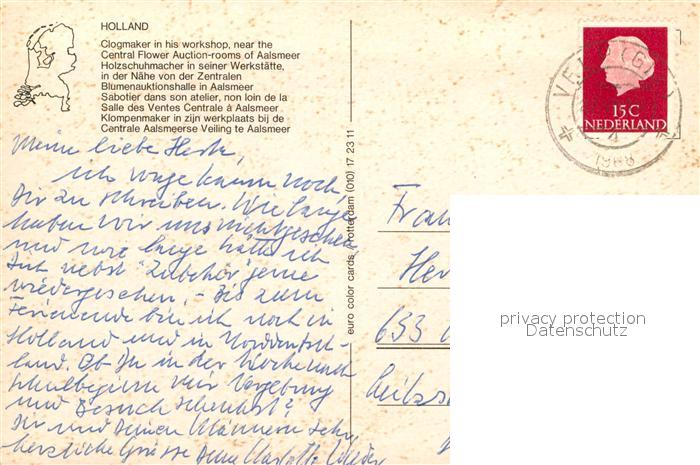 HOLLAND
Clogmaker in his workshop, near the
Central Flower Auction-rooms of Aalsmeer
Holzschuhmacher in seiner Werkstätte,
in der Nähe von der Zentralen
Blumenauktionshalle in Aalsmeer
Sabotier dans son atelier, non loin de la
Salle des Ventes Centrale à Aalsmeer
Klompenmaker in zijn werkplaats bij de
Centrale Aalsmeerse Veiling te Aalsmeer
Meine liebe
ich wage kaum noch
Dir zu schreiben. Wie lang
haben wir uns nicht gesehen
und wie lange hätte ich
Dich nebst "Zubehör" gerne
wiedergesehen, - Bis zum
Ferienende bin ich noch in
Holland und in Norddeutsch-
land. Ob Du in der Woche nach
Schulbeginn mir Vergebung
und Besuch schenkst?
Dir und Deinen Männern sehr
herzliche Grüsse Deine
euro color cards / rotterdam (010) 17 23 11
15C
NEDERLAND
Fran
Her
653
privacy protection
Datenschutz